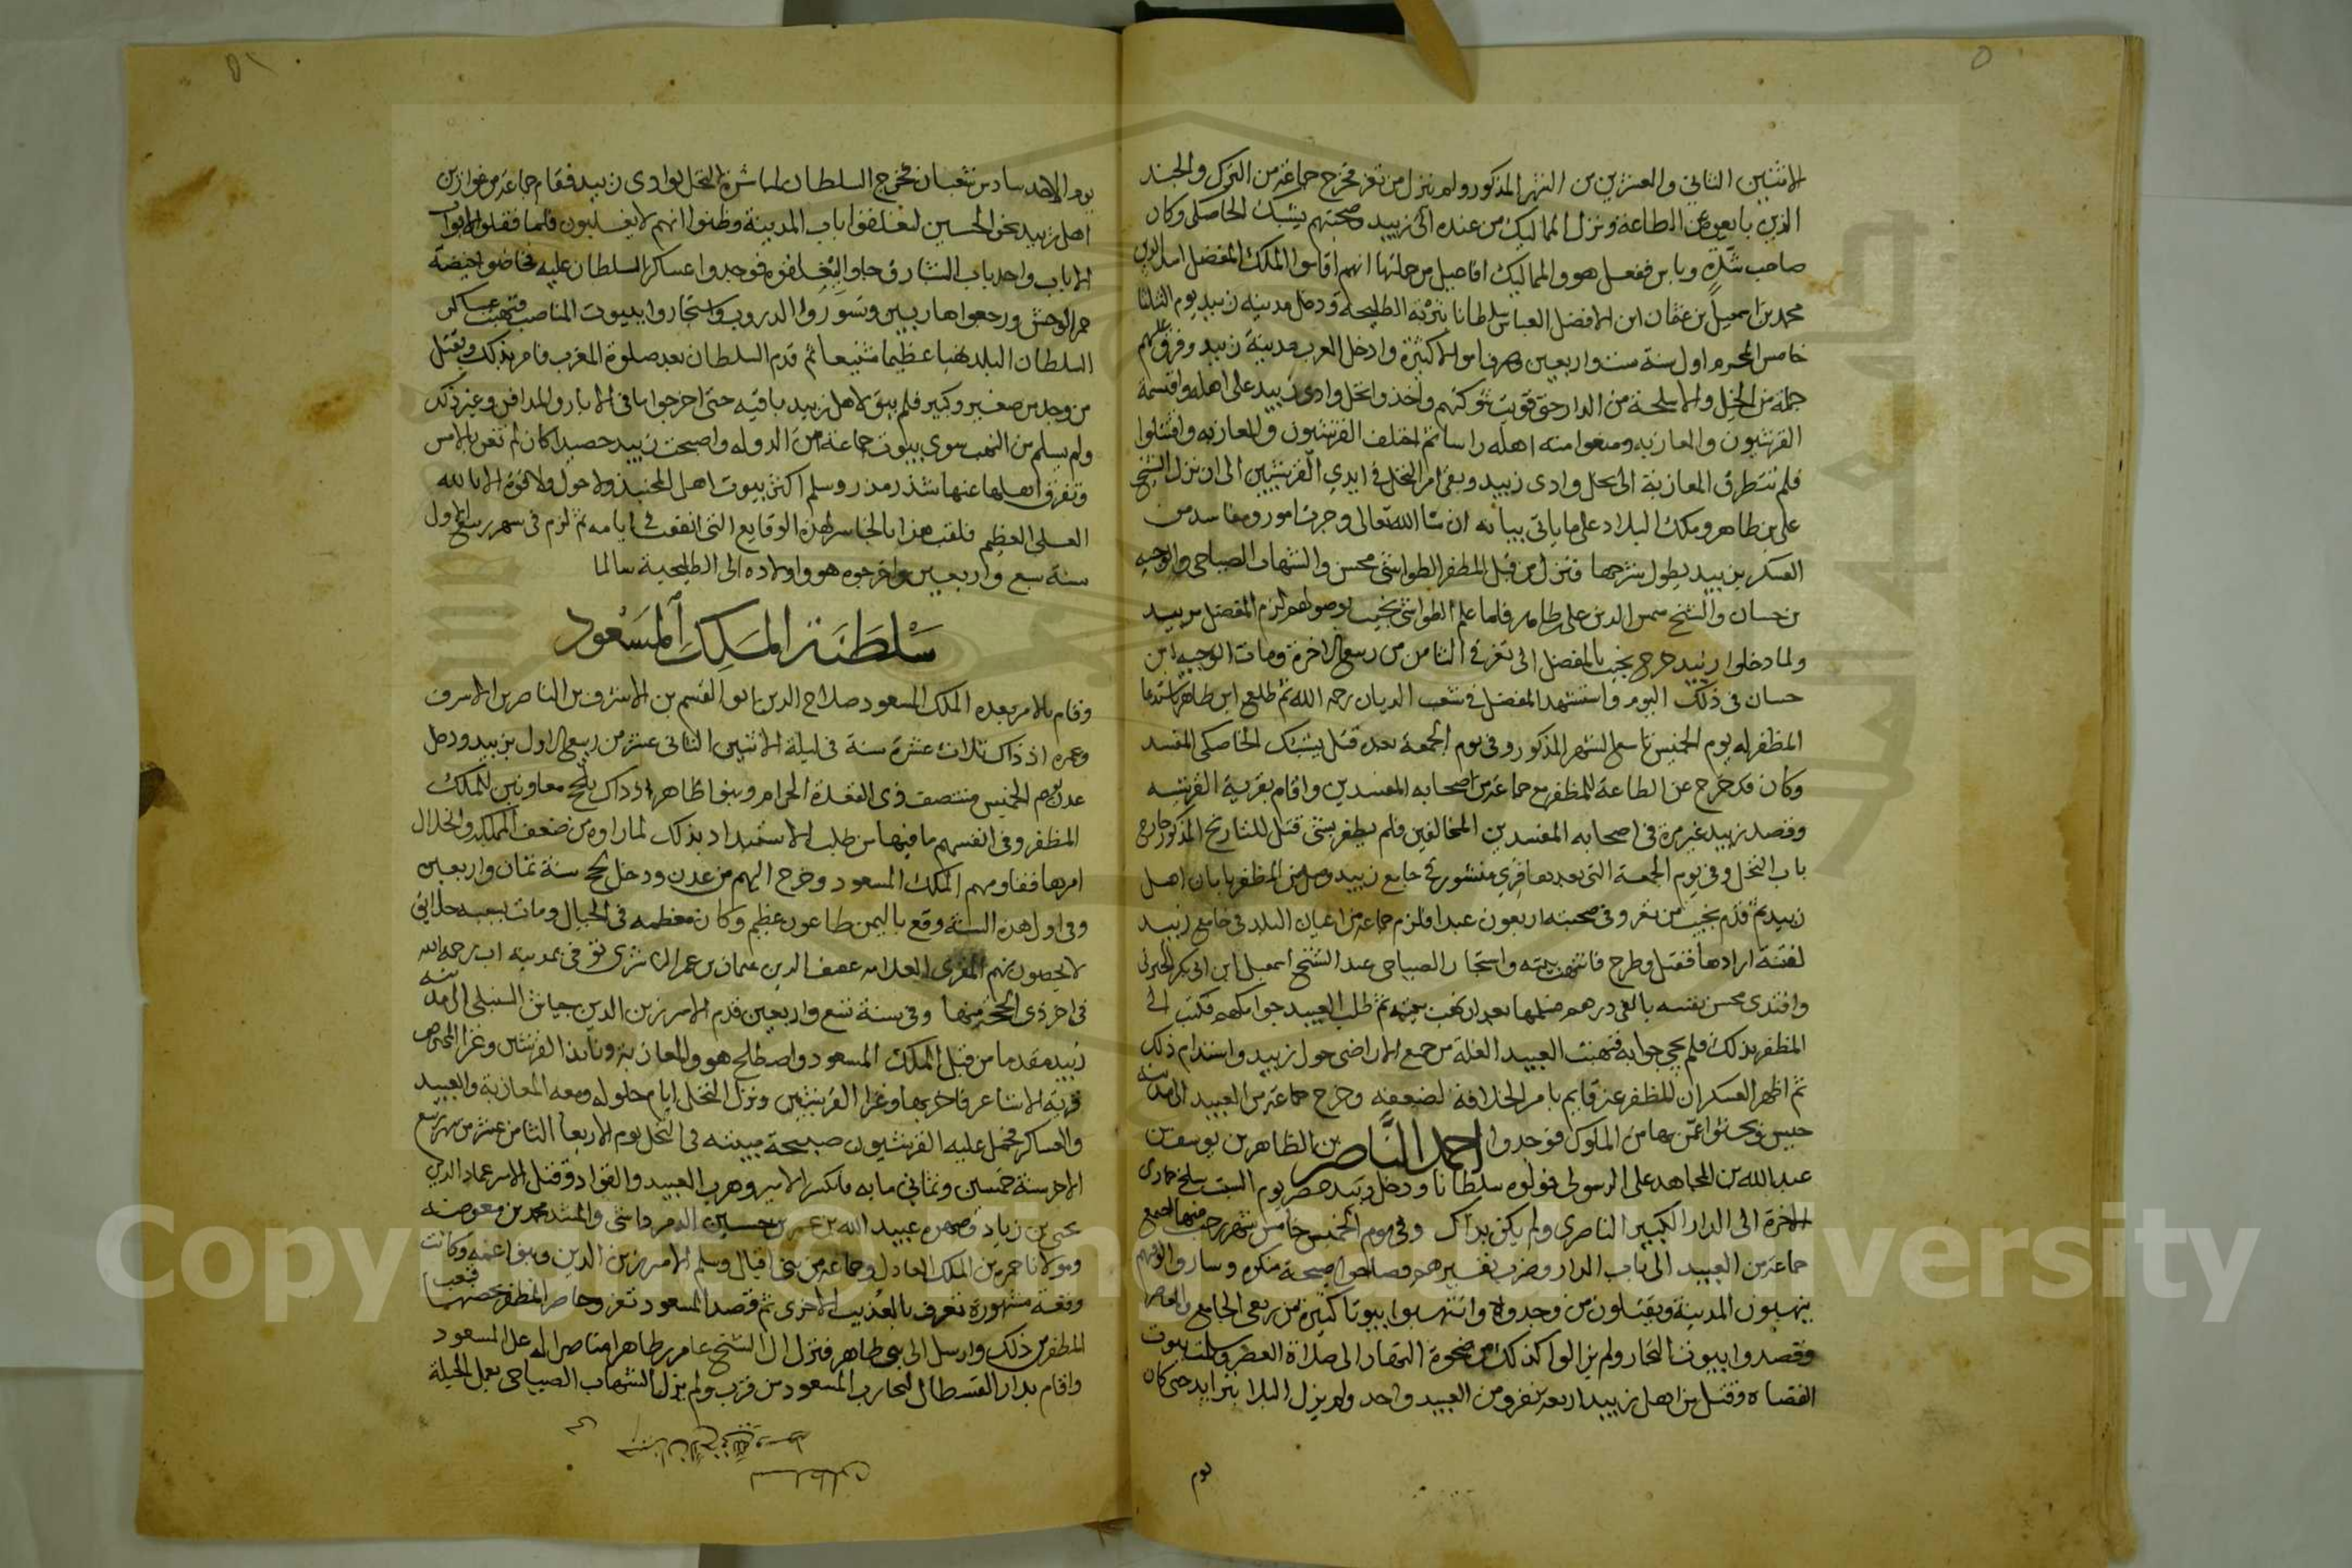 الاثنين الثاني والعشرين من الشهر المذكور ولم ينزل من تعز فخرج جماعة من الترك والجند
الذين بايعوا عن الطاعة ونزل المماليك من عنده الى زبيد وصحبتهم يشبك الخاصكي وكان
صاحب شدة وباس ففعل هو والمماليك افاعيل من جملتها انهم اقاموا الملك المفضل اسد الدين
محمد بن اسمعيل بن عثمان ابن الافضل العباس سلطانا بتربة الطليحية ودخل مدينة زبيد يوم الثلثا
خامس المحرم اول سنة ست واربعين وصرف اموالا كثيرة وادخل العرب مدينة زبيد وفرق عليهم
جملة من الخيل والاسلحة من الدار حتى قويت شوكتهم واخذوا نخل وادي زبيد على اهله واقتسمه
القرشيون والمعازبه ومنعوا منه اهله راسا ثم اختلف القرشيون والمعازبه واقتتلوا
فلم تتطرق المعازبة الى نخل وادي زبيد وبقي امر النخل في ايدي القرشيين الى ان نزل الشيخ
علي بن طاهر وملك البلاد على ما ياتي بيانه ان شا الله تعالى وجرت امور ومفاسد من
العسكر بزبيد يطول شرحها فنزل من قبل المظفر الطواشي محسن والشهاب الصباحي والوجيه
بن حسان والشيخ شمس الدين علي بن طاهر فلما علم الطواشي بخيت بوصولهم لزم المفضل بزبيد
ولما دخلوا زبيد خرج بخيت بالمفضل الى تعز في الثامن من ربيع الاخرة ومات الوجيه ابن
حسان في ذلك اليوم واستشهد المفضل في شعب الديان رحمه الله ثم طلع ابن طاهر باستدعا
المظفر له يوم الخميس تاسع الشهر المذكور وفي يوم الجمعة بعده قتل يشبك الخاصكي المفسد
وكان قد خرج عن الطاعة للمظفر مع جماعة من اصحابه المفسدين واقام بقرية القرشيه
وقصد زبيد غير مرة في اصحابه المفسدين المخالفين فلم يظفر بشي قتل للتاريخ المذكور خارج
باب النخل وفي يوم الجمعة التي بعدها قري منشور في جامع زبيد وصل من المظفر بامان اهل
زبيد ثم قدم بخيت من تعز وفي صحبته اربعون عبدا فلزم جماعة من اعيان البلد في جامع زبيد
لفتنة ارادها فقتل وطرح فانتهب بيته واستجار الصباحي عند الشيخ اسمعيل ابن ابي بكر الجبرتي
وافتدى محسن نفسه بالفي درهم سلمها بعد ان نهب بيته ثم طلب العبيد جوامكهم فكتب الى
المظفر بذلك فلم يجي جوابه فنهبت العبيد الغلة من جميع الاراضي حول زبيد واستدام ذلك
ثم اظهر العسكر ان المظفر غير قايم بامر الخلافة لضعفه وخرج جماعة من العبيد الى مدينة
حيس وبحثوا عمن بها من الملوك فوجدوا احمد الناصر بن الظاهر بن يوسف بن
عبد الله بن المجاهد علي الرسولي فولوه سلطانا ودخل زبيد عصر يوم السبت سلخ جمادى
الاخرة الى الدار الكبير الناصري ولم يكن بذاك وفي يوم الخميس خامس شهر رجب منها اجتمع
جماعة من العبيد الى باب الدار وضرب نفيرهم وصاحوا صيحة منكره وساروا الوفهم
ينهبون المدينة ويقتلون من وجدوه وانتهبوا بيوتا كثيرة من ربعي الجامع والمعاصر
وقصدوا بيوت التجار ولم يزالوا كذلك من ضحوة النهار الى صلاة العصر وسلمت بيوت
القضاة وقتل من اهل زبيد اربعة نفر ومن العبيد واحد ولم يزل البلا يتزايد حتى كان
يوم
يوم الاحد سادس شعبان فخرج السلطان لمباشرة النخل بوادي زبيد فقام جماعة من عوارين
اهل زبيد نحو الخمسين لغلقوا باب المدينة وظنوا انهم لا يغلبون فلما قفلوا الابواب
الا باب واحد باب الشبارق جاوا ليغلقوه فوجدوا عساكر السلطان عليه فحاصوا حيصة
حمر الوحش ورجعوا هاربين وتسوروا الدروب واستجاروا ببيوت المناصب فنهبت عساكر
السلطان البلد نهبا عظيما شنيعا ثم قدم السلطان بعد صلوة المغرب فامر بذلك وبقتل
من وجد من صغير وكبير فلم يبق لاهل زبيد باقيه حتى اخرجوا ما في الابار والمدافن وغير ذلك
ولم يسلم من النهب سوى بيوت جماعة من الدوله واصبحت زبيد حصيدا كان لم تغن بالامس
وتفرق اهلها عنها شذر مذر وسلم اكثر بيوت اهل المجنبذ ولا حول ولا قوة الا بالله
العلي العظيم فلقب هذا بالخاسر لهذه الوقايع التي اتفقت في ايامه ثم لزم في شهر ربيع الاول
سنة سبع واربعين واخرجوه هو واولاده الى الطليحية سالما
سلطنة الملك المسعود
وقام بالامر بعده الملك المسعود صلاح الدين ابو القسم بن الاشرف بن الناصر بن الاشرف
وعمره اذ ذاك ثلاث عشرة سنة في ليلة الاثنين الثاني عشر من ربيع الاول بزبيد ودخل
عدن يوم الخميس منتصف ذي القعدة الحرام وبنوا طاهر اذ ذاك بلحج معاونين للملك
المظفر وفي انفسهم ما فيها من طلب الاستبداد بذلك لما راوه من ضعف المملكة وانخذال
امرها فقاومهم الملك المسعود وخرج اليهم من عدن ودخل لحج سنة ثمان واربعين
وفي اول هذه السنة وقع باليمن طاعون عظيم وكان معظمه في الجبال ومات بسببه خلايق
لا يحصون منهم المقري العلامه عفيف الدين عثمان بن عمر الناشري توفي بمدينة اب رحمه الله
في اخر ذي الحجة منها وفي سنة تسع واربعين قدم الامير زين الدين جياش السنبلي الى مدينة
زبيد مقدما من قبل الملك المسعود واصطلح هو والمعازبة ونابذا القرشيين وغزا المحرص
قرية الاشاعر فاخربها وغزا القرشيين ونزل النخل ايام حلوله ومعه المعازبة والعبيد
والعساكر فحمل عليه القرشيون صبيحة مبيته في النخل يوم الاربعا الثامن عشر من شهر ربيع
الاخر سنة خمسين وثماني مايه فانكسر الامير وهرب العبيد والقواد وقتل الامير عماد الدين
يحيى بن زياد وصهره عبيد الله بن عمر بن حسين الدمرداشي والمشد محمد بن معوضه
ومولانا حمزه بن الملك العادل وجماعة من بني اقبال وسلم الامير زين الدين وبنوا عمه وكانت
وقعة مشهورة تعرف بالعذيب الاخرى ثم قصد المسعود تعز وحاصر المظفر بحصنها فتعب
المظفر من ذلك وارسل الى بني طاهر فنزل اليه الشيخ عامر بن طاهر مناصرا له على المسعود
واقام بدار القسطال لتحارب المسعود من قرب ولم يزل الشهاب الصباحي يعمل الحيلة